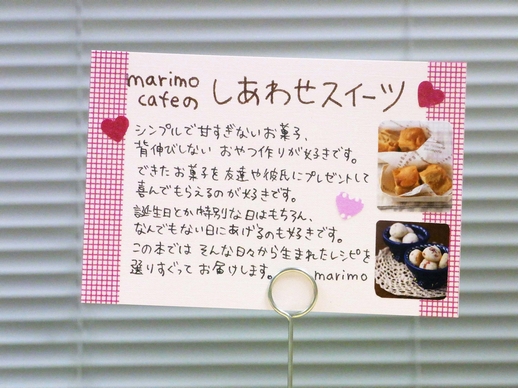 marimo
cafeの しあわせスイーツ
シンプルで甘すぎないお菓子、
背伸びしない おやつ作りが好きです。
できたお菓子を友達や彼氏にプレゼントして
喜んでもらえるのが好きです。
誕生日とか特別な日はもちろん、
なんでもない日にあげるのも好きです。
この本では そんな日々から生まれたレシピを
選りすぐって お届けします。 marimo